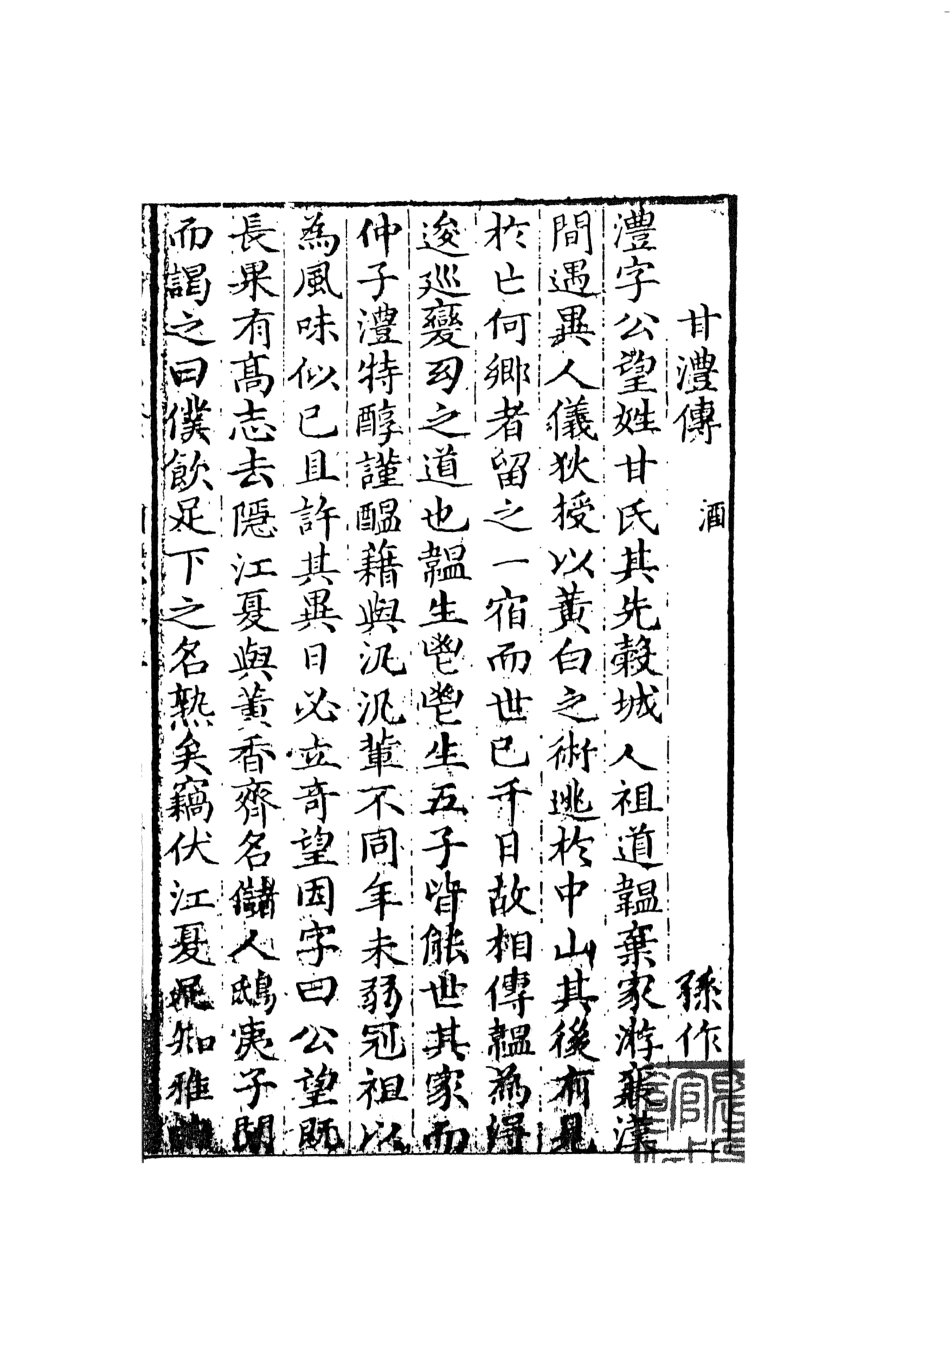 甘澧傳 酒 孫作
澧字公望姓甘氏其先穀城人祖道韞棄家游襄漢
間遇異人儀狄授以黃白之術逃於中山其後有見
於亡何鄉者留之一宿而世已千日故相傳韞為得
逡巡變幻之道也韞生鬯鬯生五子皆能世其家而
仲子澧特醇謹醞藉與汎汎輩不同年未弱冠祖以
為風味似已且許其異日必立奇望因字曰公望既
長果有高志去隱江夏與黃香齊名讎人鴟夷子聞
而謁之曰僕飲足下之名熟矣竊伏江夏 知雅